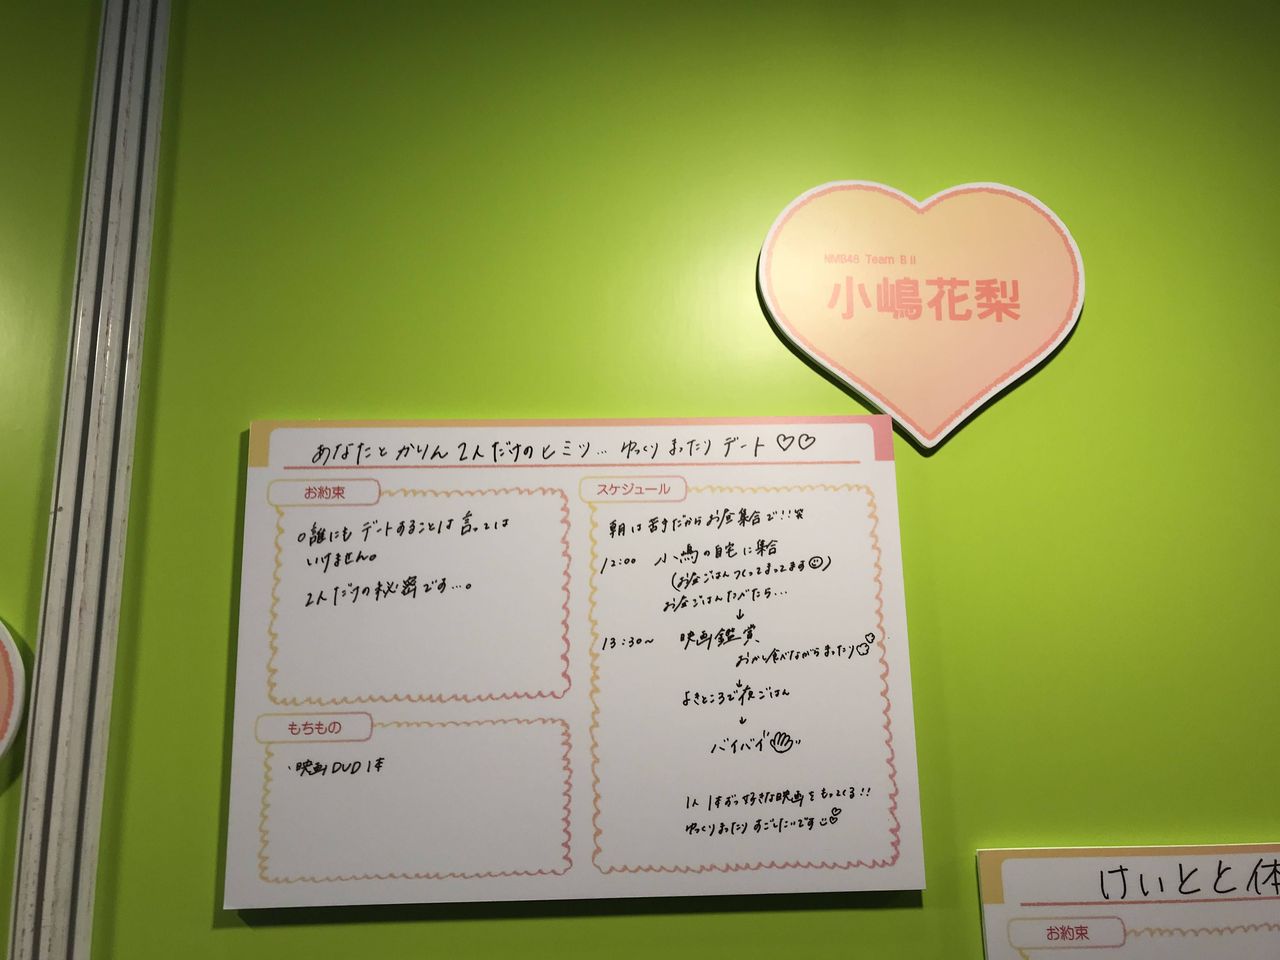 NMB48 Team BⅡ
小嶋花梨
あなたとかりん2人だけのヒミツ… ゆっくりまったりデート♡♡
お約束
○誰にもデートすることは言っては
いけません。
2人だけの秘密です…。
もちもの
・映画DVD 1本
スケジュール
朝は苦手だからお昼集合で!!笑
12:00 小嶋の自宅に集合
(お昼ごはんつくってまってます☺)
お昼ごはんたべたら…
↓
13:30~ 映画鑑賞
おかし食べながらまったり♡♡
↓
よきところで夜ごはん
↓
バイバイ
1人1本ずつ好きな映画をもってくる!!
ゆっくりまったりすごしたいです♡
けいとと体
お約束